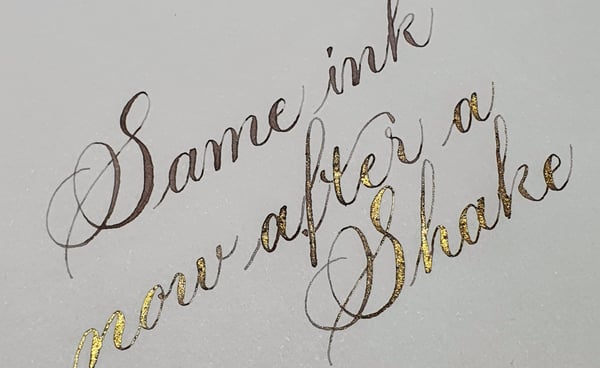 Same ink
now after a
Shake